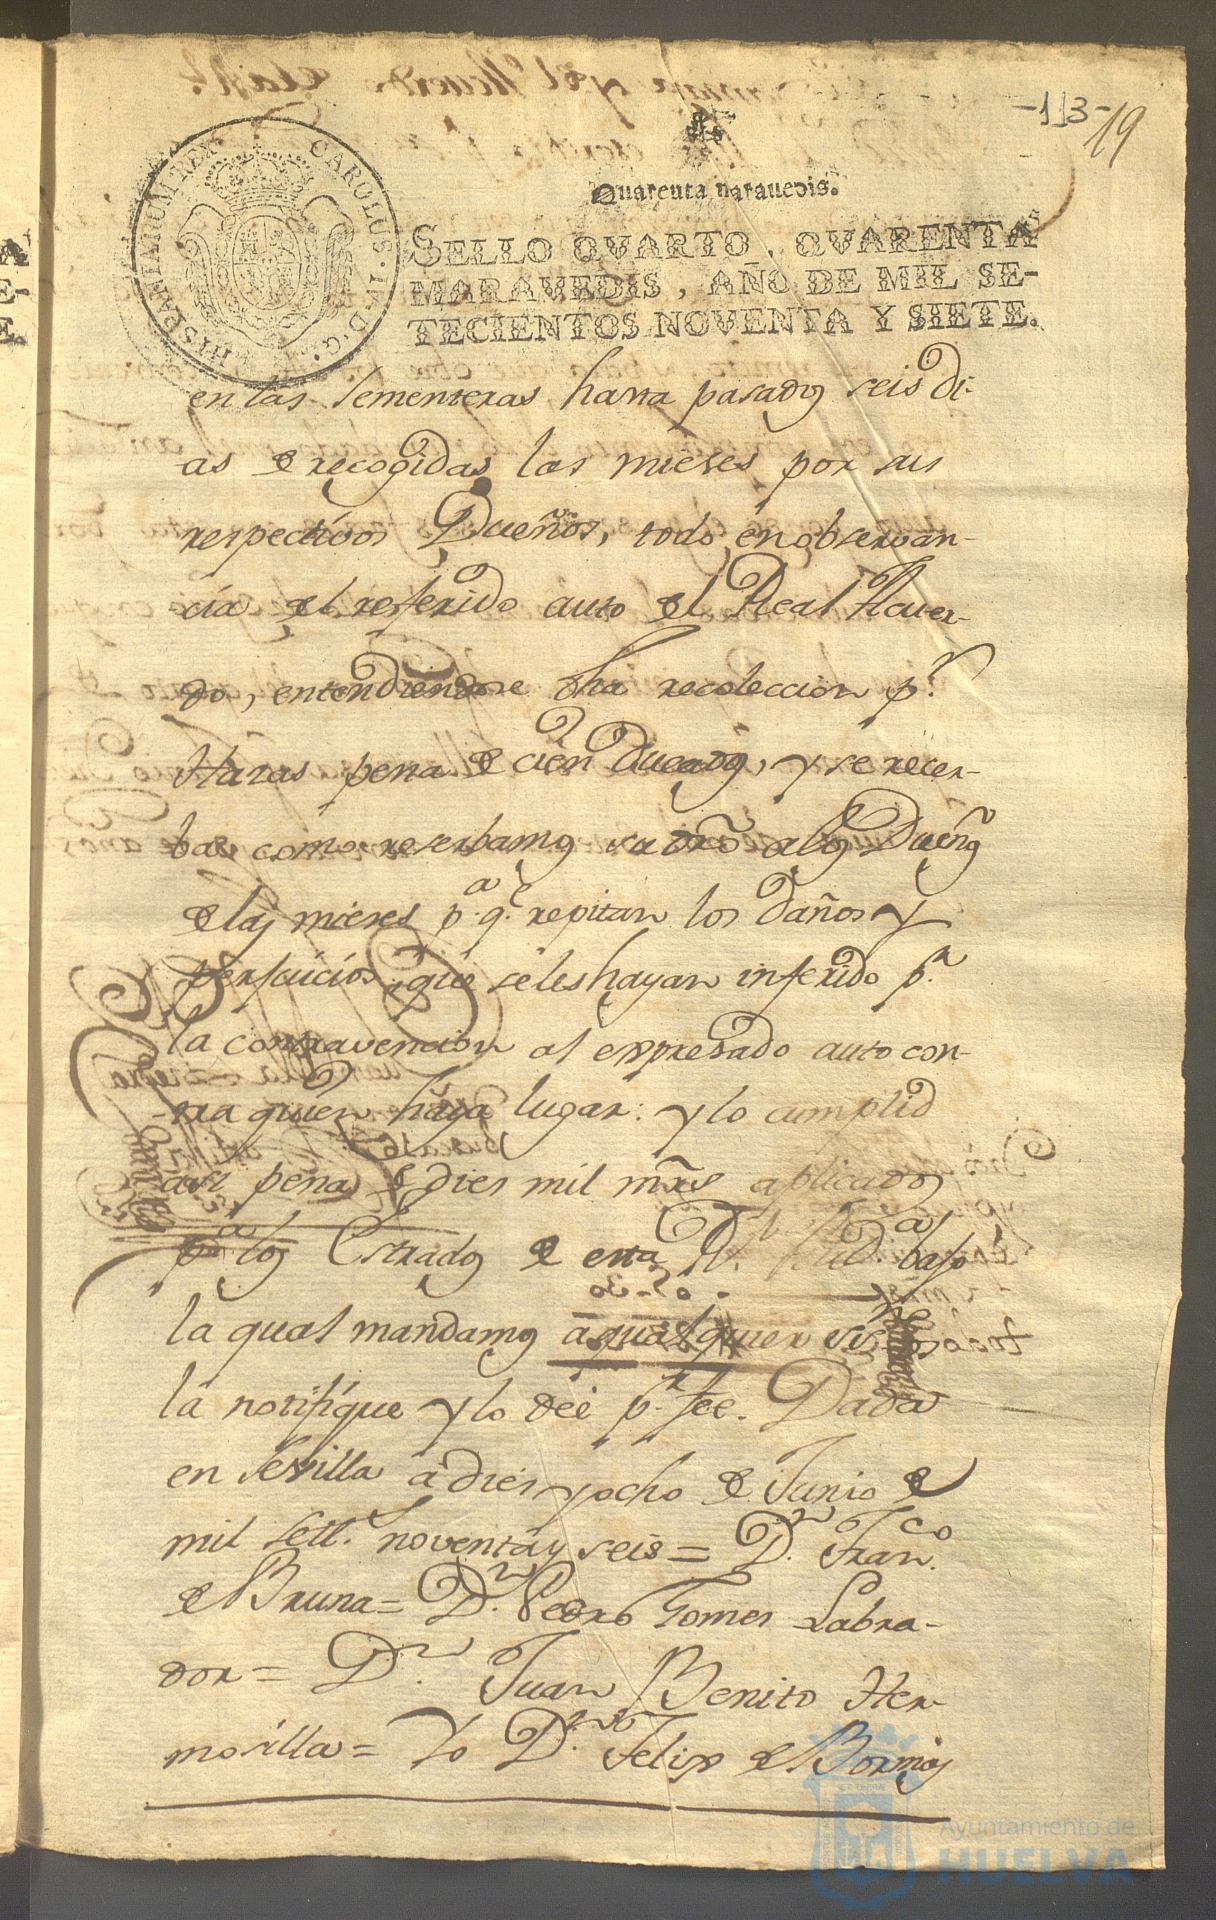 -113- 19
Quarenta maravedis.
HISPANIARUM REX CAROLUS IV D G
SELLO QVARTO, QVARENTA
MARAVEDIS, AÑO DE MIL SE-
TECIENTOS NOVENTA Y SIETE.
en las sementeras hasta pasados seis di-
as de recogidas las mieses por sus
respectivos Dueños, todo en observan-
cia del referido auto del Real Acuer-
do, entendiendose dha recoleccion pr.
Hazas pena de cien Ducados, y se recer-
ba como reserbamos su dro a los Dueños
de las mieses pa. qe. repitan los daños y
perjuicios, que seles hayan inferido pr.
la contravencion al expresado auto con-
tra quien haya lugar: y lo cumplid
asi pena de dies mil mrs aplicados
pa los Estrados de esta Rl. Aud.a bajo
la qual mandamos a qualquier
la notifique y lo deé pr. fee. Dada
en Sevilla a dies y ocho de Junio de
mil sett.s noventa y seis = Dn. Franco.
de Bruna = Dn. Pedro Gomes Labra-
dor = Dn. Juan Benito Her-
mosilla = Yo Dn. Felix de Bormas
Ayuntamiento de
HUELVA